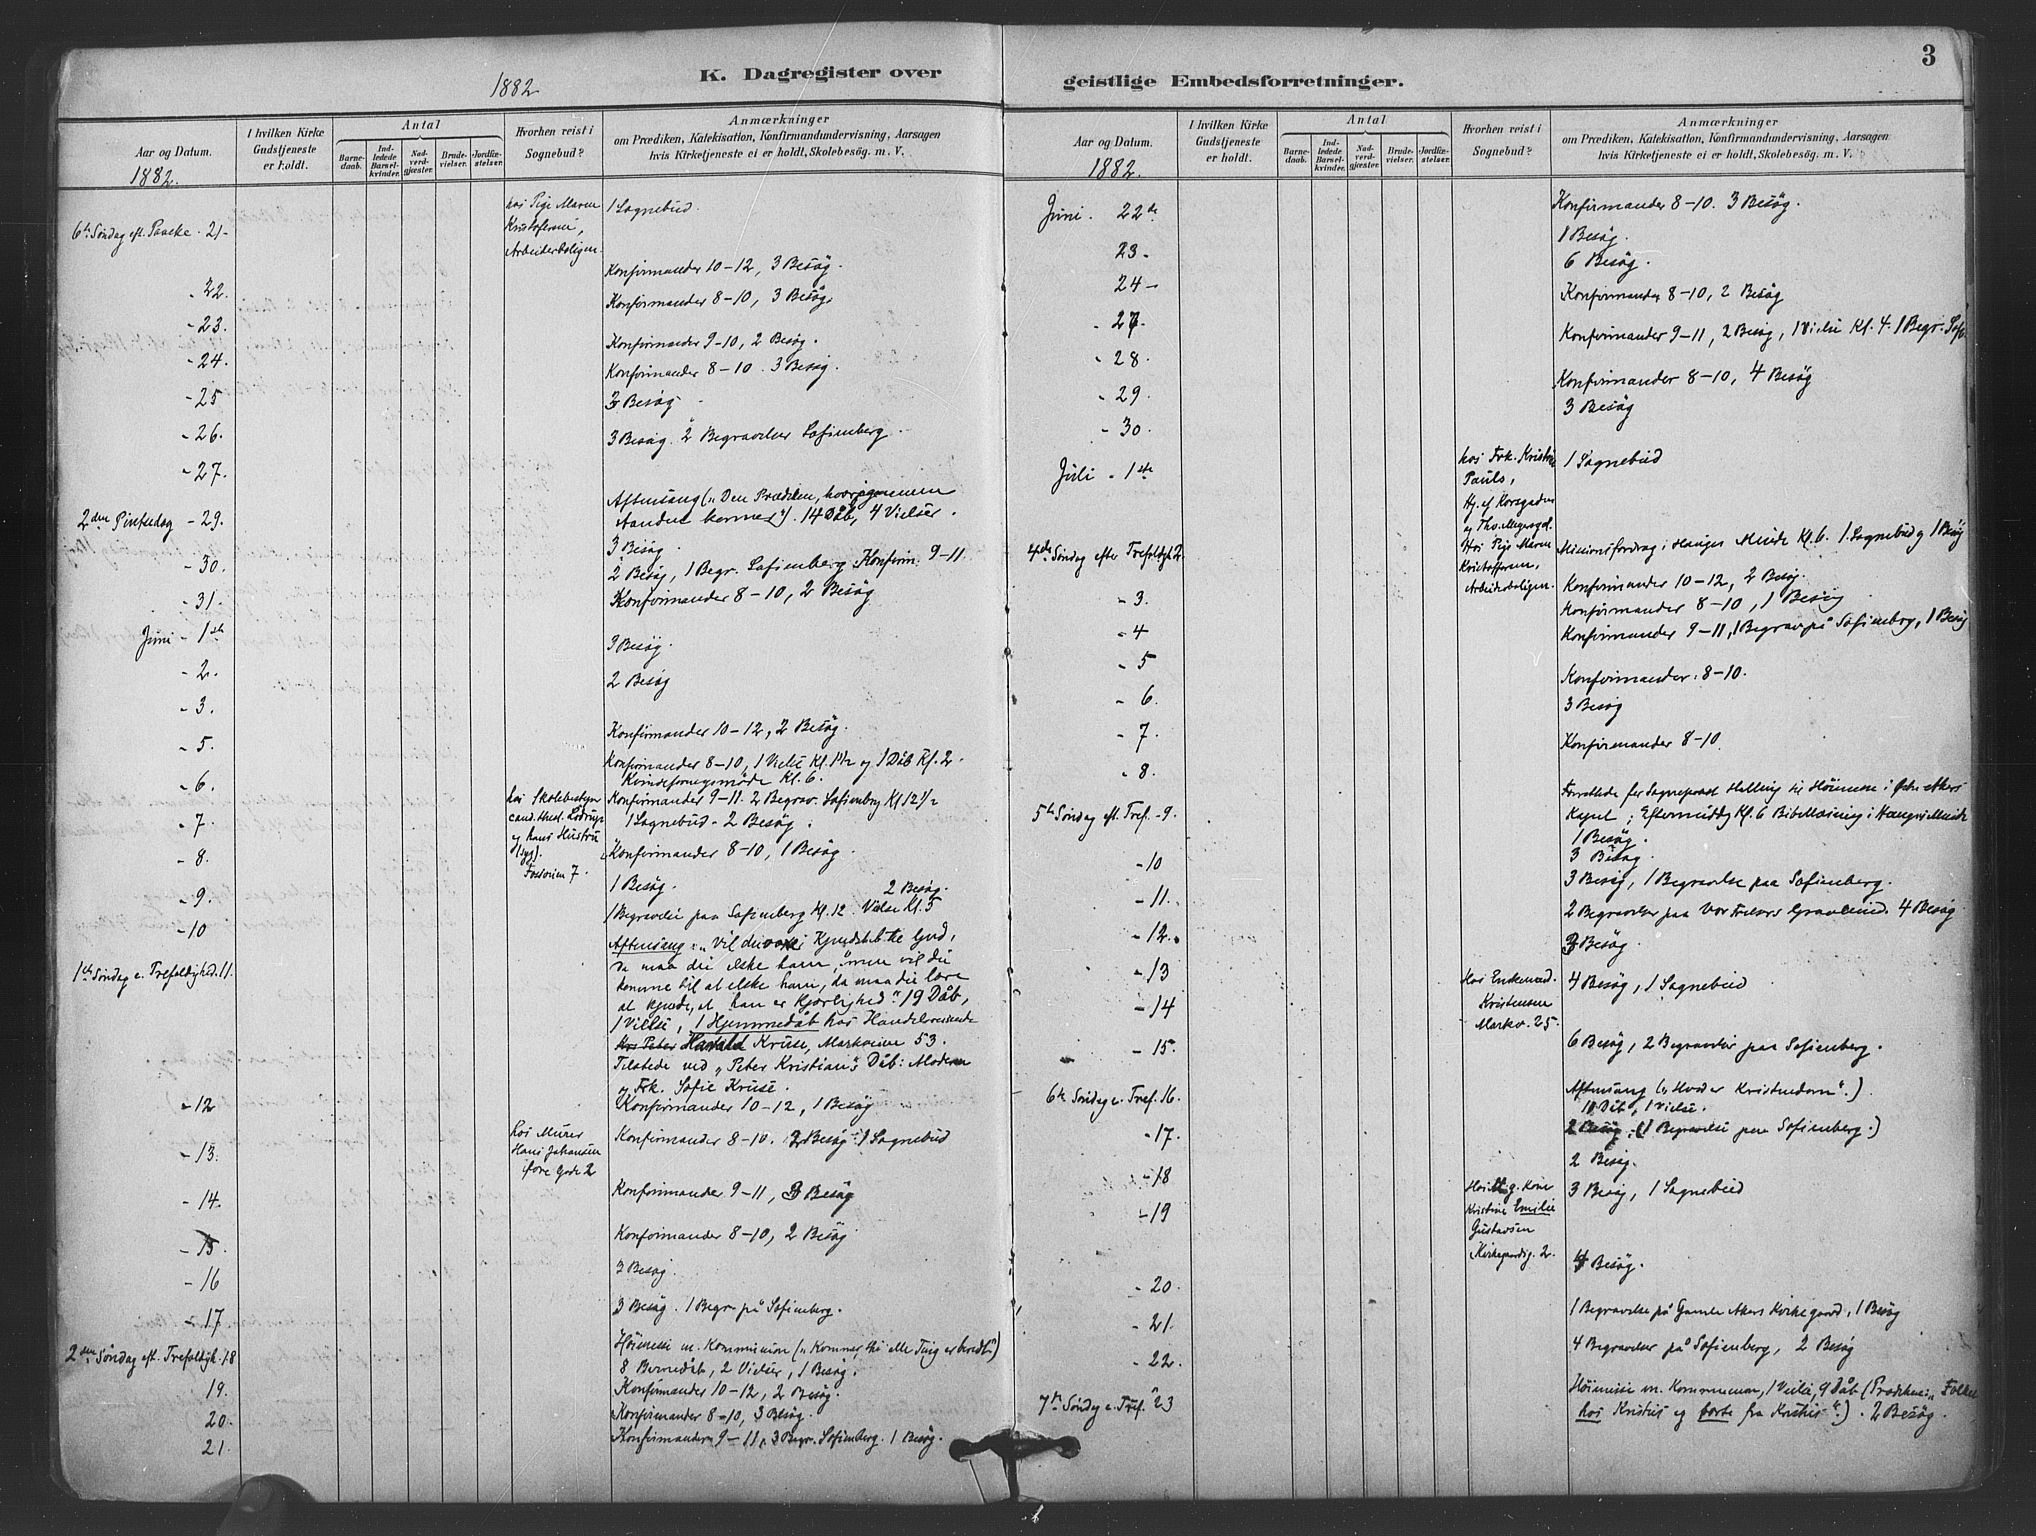 1882
K. Dagregister over
Aar og Datum.
1882.
I hvilken Kirke
Gudstjeneste
er holdt.
Antal
Barne-
daab.
Ind-
ledede
Barsel-
kvinder.
Nad-
verd-
gjæster.
Brude-
vielser.
Jordfæ-
stelser.
Hvorhen reist i
Sognebud?
Anmærkninger
om Prædiken, Katekisation, Konfirmandundervisning, Aarsagen
hvis Kirketjeneste ei er holdt, Skolebesøg. m. V.
6te Søndag eft. Paaske. 21-
hos Pige Maren
Kristofersen,
Arbeiderboligen.
1 Sognebud.
Konfirmander 10-12, 3 Besøg.
- 22.
Konfirmander 8-10, 3 Besøg.
- 23.
Konfirmander 9-10, 2 Besøg.
- 24.
Konfirmander 8-10. 3 Besøg.
- 25
3 Besøg
- 26.
3 Besøg. 2 Begravelser Sofienberg
- 27.
2den Pintsedag - 29.
Aftensang („Den Prædiken, hvorigjennem
Aanden kommer"). 14 Dåb, 4 Vielser.
3 Besøg.
- 30.
2 Besøg, 1 Begr. Sofienberg. Konfirm. 9-11.
- 31.
Konfirmander 8-10, 2 Besøg
Juni - 1ste
3 Besøg.
- 2.
2 Besøg
- 3.
Konfirmander 10-12, 2 Besøg.
- 5.
Konfirmander 8-10, 1 Vielse Kl. 1½ og 1 Dåb Kl. 2.
Kvindeforeningsmøde Kl. 6.
- 6.
hos Skolebestyrer
cand. theol. Lødrup
og hans Hustru
(syg).
Fossveien 7.
Konfirmander 9-11. 2 Begrav. Sofienberg Kl 12½
- 7.
1 Sognebud - 2 Besøg.
- 8.
Konfirmander 8-10, 1 Besøg.
- 9.
1 Besøg. 2 Besøg.
1 Begravelse paa Sofienberg Kl. 12. Vielse Kl. 5
- 10
1ste Søndag e. Trefoldighed. 11.
Aftensang: „Vil du Gud,
da maa du elske ham, men vil du
komme til at elske ham, da maa du lære
at kjende, at han er Kjærlighed" 19 Dåb,
1 Vielse, 1 Hjemmedåb hos Handelsreisende
Harald Kruse, Markveien 53.
Tilstede ved „Peter Kristian"s Dåb: Moderen
og Frk. Sofie Kruse.
- 12
Konfirmander 10-12, 1 Besøg
- 13.
hos Murer
Hans Johansen
Gade 2
Konfirmander 8-10. 2 Besøg. 1 Sognebud
- 14.
Konfirmander 9-11, 3 Besøg
- 15.
Konfirmander 8-10, 2 Besøg
- 16
3 Besøg.
- 17.
3 Besøg. 1 Begr. på Sofienberg.
2den Søndag eft. Trefoldigh. 18
Høimesse m. Kommunion („Kommer, thi alle Ting er beredt")
8 Barnedåb, 2 Vielser, 1 Besøg.
19.
Konfirmander 10-12, 2 Besøg.
20.
Konfirmander 8-10, 3 Besøg.
21.
Konfirmander 9-11, 3 Begr. Sofienberg. 1 Besøg.
3
geistlige Embedsforretninger.
Aar og Datum.
1882.
I hvilken Kirke
Gudstjeneste
er holdt.
Antal
Barne-
daab.
Ind-
ledede
Barsel-
kvinder.
Nad-
verd-
gjæster.
Brude-
vielser.
Jordfæ-
stelser.
Hvorhen reist i
Sognebud?
Anmærkninger
om Prædiken, Katekisation, Konfirmandundervisning, Aarsagen
hvis Kirketjeneste ei er holdt, Skolebesøg. m. V.
Juni. 22de
Konfirmander 8-10. 3 Besøg.
1 Besøg.
23.
6 Besøg.
24-
Konfirmander 8-10, 2 Besøg
- 27.
Konfirmander 9-11, 2 Besøg, 1 Vielse Kl. 4. 1 Begr. Sofi.
- 28.
Konfirmander 8-10, 4 Besøg
- 29.
3 Besøg
- 30.
Juli - 1ste
hos Frk. Kristine
Pauls,
Hj. af Korsgaden
og Thv. Meyersgd.
1 Sognebud
4de Søndag efter Trefoldigh 2.
Hos Pige Maren
Kristoffersen,
Arbeiderboligen.
Missionsforedrag i Hauges Minde Kl. 6. 1 Sognebud og 1 Besøg
Konfirmander 10-12, 2 Besøg.
- 3.
Konfirmander 8-10, 1 Besøg
- 4
Konfirmander 9-11, 1 Begrav. på Sofienberg, 1 Besøg
- 5
Konfirmander. 8-10.
- 6.
3 Besøg
- 7.
Konfirmander 8-10.
- 8.
Forrettede for Sogneprest Helling til Høimesse i Østre Akers
5te Søndag eft. Tref. - 9.
Kapel; Eftermiddg Kl. 6 Bibellæsning i Hauges Minde
1 Besøg.
3 Besøg.
- 10
3 Besøg, 1 Begravelse paa Sofienberg.
- 11.
2 Begravelser paa Vor Frelsers Gravlund. 4 Besøg
- 12.
3 Besøg.
- 13
Hos Enkemad.
Kristensen
Markv. 25.
4 Besøg, 1 Sognebud
- 14
6 Besøg, 2 Begravelser paa Sofienberg.
- 15.
6te Søndag e. Tref. 16.
Aftensang („Hvad er Kristendom".)
11 Dåb, 1 Vielse.
- 17.
2 Besøg. (1 Begravelse paa Sofienberg.)
2 Besøg.
- 18
Hos g. Kone
Kristine Emilie
Gustavsen
Kirkegaardsg. 2.
3 Besøg, 1 Sognebud
- 19
4 Besøg.
- 20.
1 Begravelse på Gamle Akers Kirkegaard, 1 Besøg
- 21.
4 Begravelser på Sofienberg, 2 Besøg
- 22.
7de Søndag e. Tref. 23
Høimesse m. Kommunion, 1 Vielse, 9 Dåb (Prædiken: „Folket
hos Kristus og borte fra Kristus".). 2 Besøg.